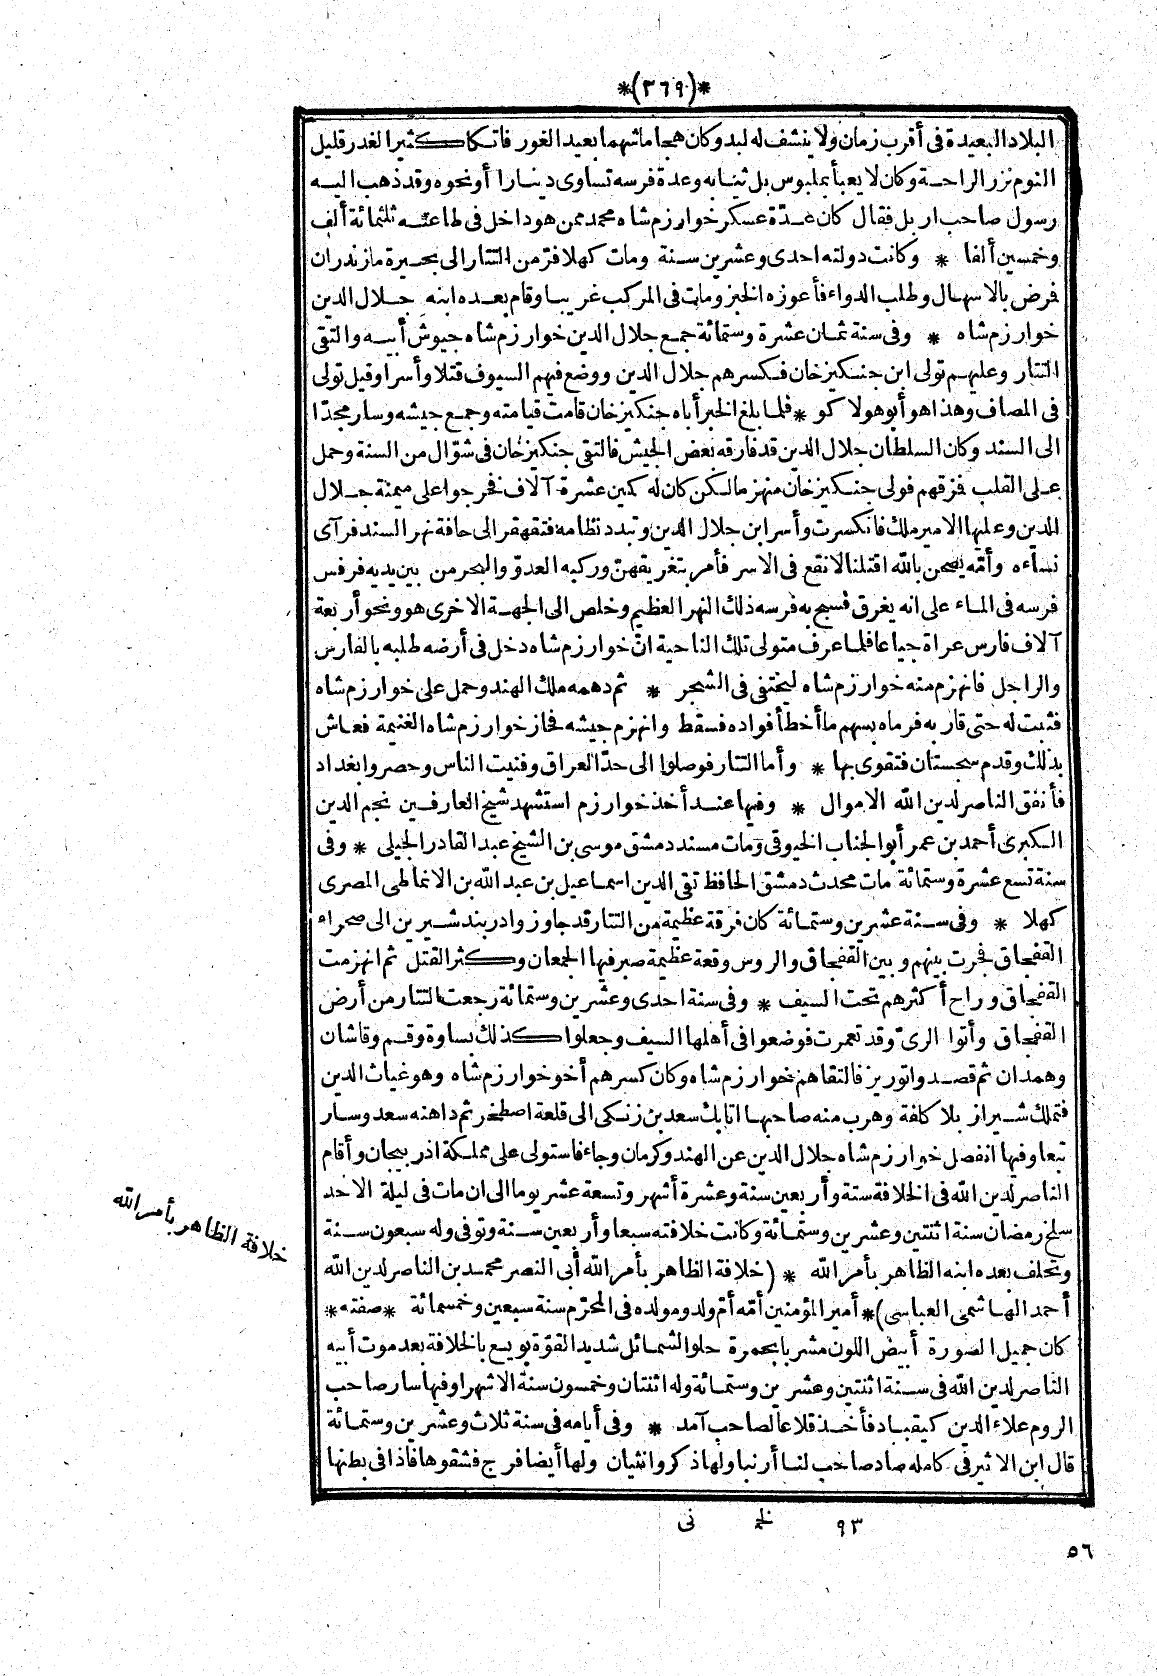 *(٣٦٩)*
البلاد البعيدة فى أقرب زمان ولا ينشف له لبد وكان هجاما شهما بعيد الغور فاتكا كثير الغدر قليل
النوم نزر الراحة وكان لا يعبأ بملبوس بل ثيابه وعدة فرسه تساوى دينارا أو نحوه وقد ذهب اليه
رسول صاحب اربل فقال كان عدّة عسكر خوارزم شاه محمد ممن هو داخل فى طاعته ثلثمائة ألف
وخمسين ألفا * وكانت دولته احدى وعشرين سنة ومات كهلا فرّ من التتار الى بحيرة مازندران
فرض بالاسهال وطلب الدواء فأعوزه الخبز ومات فى المركب غريبا وقام بعده ابنه جلال الدين
خوارزم شاه * وفى سنة ثمان عشرة وستمائة جمع جلال الدين خوارزم شاه جيوش أبيه والتقى
التتار وعليهم تولى ابن جنكيزخان فكسرهم جلال الدين ووضع فيهم السيوف قتلا وأسرا وقيل تولى
فى المصاف وهذا هو أبو هولاكو * فلما بلغ الخبر أباه جنكيزخان قامت قيامته وجمع جيشه وسار مجدّا
الى السند وكان السلطان جلال الدين قد فارقه بعض الجيش فالتقى جنكيزخان فى شوّال من السنة وحمل
على القلب فمزقهم فولى جنكيزخان منهزما لكن كان له كمين عشرة آلاف فخرجوا على ميمنة جلال
الدين وعليها الامير ملك فانكسرت وأسر ابن جلال الدين وتبدد نظامه فتقهقر الى حافة نهر السند فرآى
نساءه وأمّه يصحن بالله اقتلنا لا نقع فى الاسر فأمر بتغريقهنّ وركبه العدوّ والبحر من بين يديه فرفس
فرسه فى الماء على انه يغرق فسبح به فرسه ذلك النهر العظيم وخلص الى الجهة الاخرى هو ونحو أربعة
آلاف فارس عراة جياعا فلما عرف متولى تلك الناحية انّ خوارزم شاه دخل فى أرضه طلبه بالفارس
والراجل فانهزم منه خوارزم شاه ليختفى فى الشجر * ثم دهمه ملك الهند وحمل على خوارزم شاه
فثبت له حتى قاربه فرماه بسهم ما أخطأ فواده فسقط وانهزم جيشه فحاز خوارزم شاه الغنيمة فعاش
بذلك وقدم سجستان فتقوى بها * وأما التتار فوصلوا الى حدّ العراق وفنيت الناس وحصروا بغداد
فأنفق الناصر لدين الله الاموال * وفيها عند أخذ خوارزم استشهد شيخ العارفين نجم الدين
الكبرى أحمد بن عمر أبو الجناب الخيوقى ومات مسند دمشق موسى بن الشيخ عبد القادر الجيلى * وفى
سنة تسع عشرة وستمائة مات محدث دمشق الحافظ تقى الدين اسماعيل بن عبد الله بن الانماطى المصرى
كهلا * وفى سنة عشرين وستمائة كان فرقة عظيمة من التتار قد جاوزوا دربند شيرين الى صحراء
القفجاق فجرت بينهم وبين القفجاق والروس وقعة عظيمة صبر فيها الجمعان وكثر القتل ثم انهزمت
القفجاق وراح أكثرهم تحت السيف * وفى سنة احدى وعشرين وستمائة رجعت التتار من أرض
القفجاق وأتوا الرىّ وقد تعمرت فوضعوا فى أهلها السيف وجعلوا كذلك بساوة وقم وقاشان
وهمدان ثم قصدوا توريز فالتقاهم خوارزم شاه وكان كسرهم أخو خوارزم شاه وهو غياث الدين
فتملك شيراز بلا كلفة وهرب منه صاحبها اتابك سعد بن زنكى الى قلعة اصطخر ثم داهنه سعد وسار
تبعا وفيها انفصل خوارزم شاه جلال الدين عن الهند وكرمان وجاء فاستولى على مملكة اذربيجان وأقام
الناصر لدين الله فى الخلافة ستة وأربعين سنة وعشرة أشهر وتسعة عشر يوما الى ان مات فى ليلة الاحد
سلخ رمضان سنة اثنتين وعشرين وستمائة وكانت خلافته سبعا وأربعين سنة وتوفى وله سبعون سنة
وتخلف بعده ابنه الظاهر بأمر الله * (خلافة الظاهر بأمر الله أبى النصر محمد بن الناصر لدين الله
أحمد الهاشمى العباسى)* أمير المؤمنين أمّه أمّ ولد ومولده فى المحرّم سنة سبعين وخمسمائة *صفته*
كان جميل الصورة أبيض اللون مشربا بحمرة حلو الشمائل شديد القوّة بويع بالخلافة بعد موت أبيه
الناصر لدين الله فى سنة اثنتين وعشرين وستمائة وله اثنتان وخمسون سنة الا شهرا وفيها سار صاحب
الروم علاء الدين كيقباد فأخذ قلاعا لصاحب آمد * وفى أيامه فى سنة ثلاث وعشرين وستمائة
قال ابن الاثير فى كامله صاد صاحب لنا أرنبا ولها ذكر وانثيان ولها أيضا فرج فشقوها فاذا فى بطنها
خلافة الظاهر بأمر الله
٩٣ خ نى
٥٦